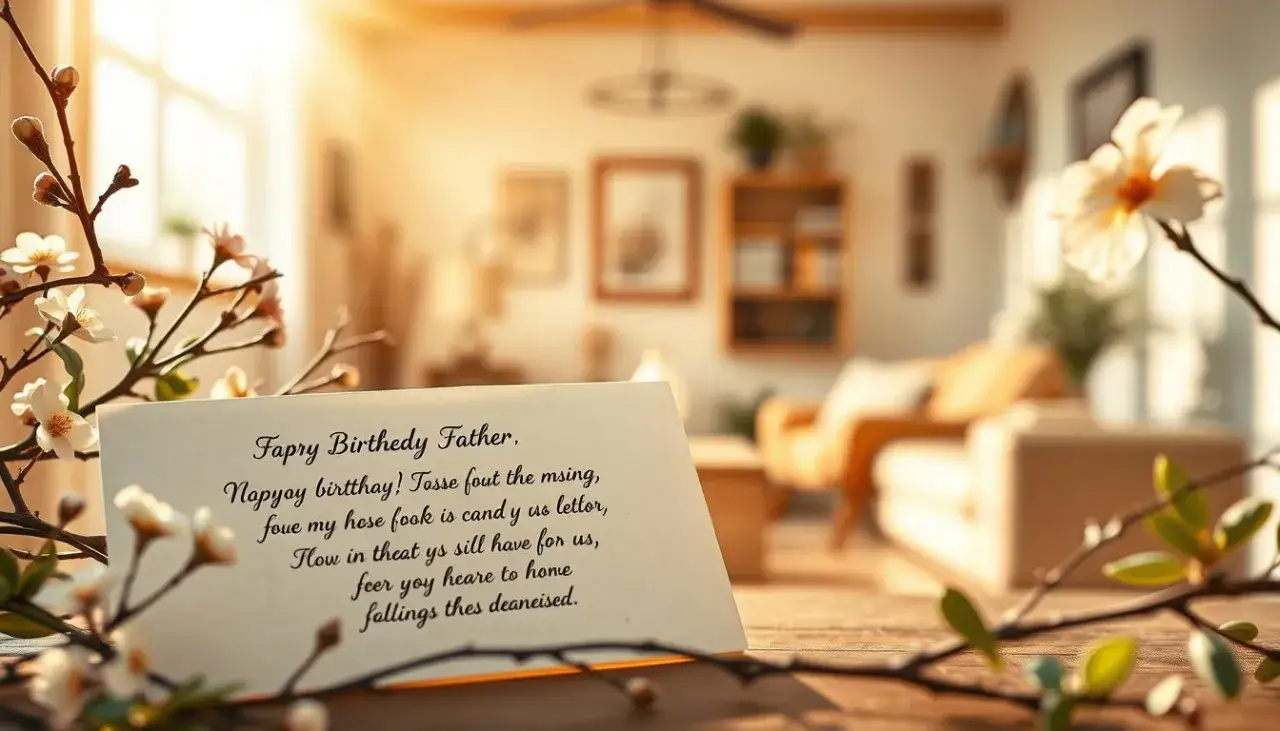 Fapry Birthedy Father,
Napyoy birtthay! Tosse fout the msing,
foue my hose fook is cand y us letlor,
Tlow in theat ys sill have for us,
feer yoy heare to home
fallings thes deaneised.